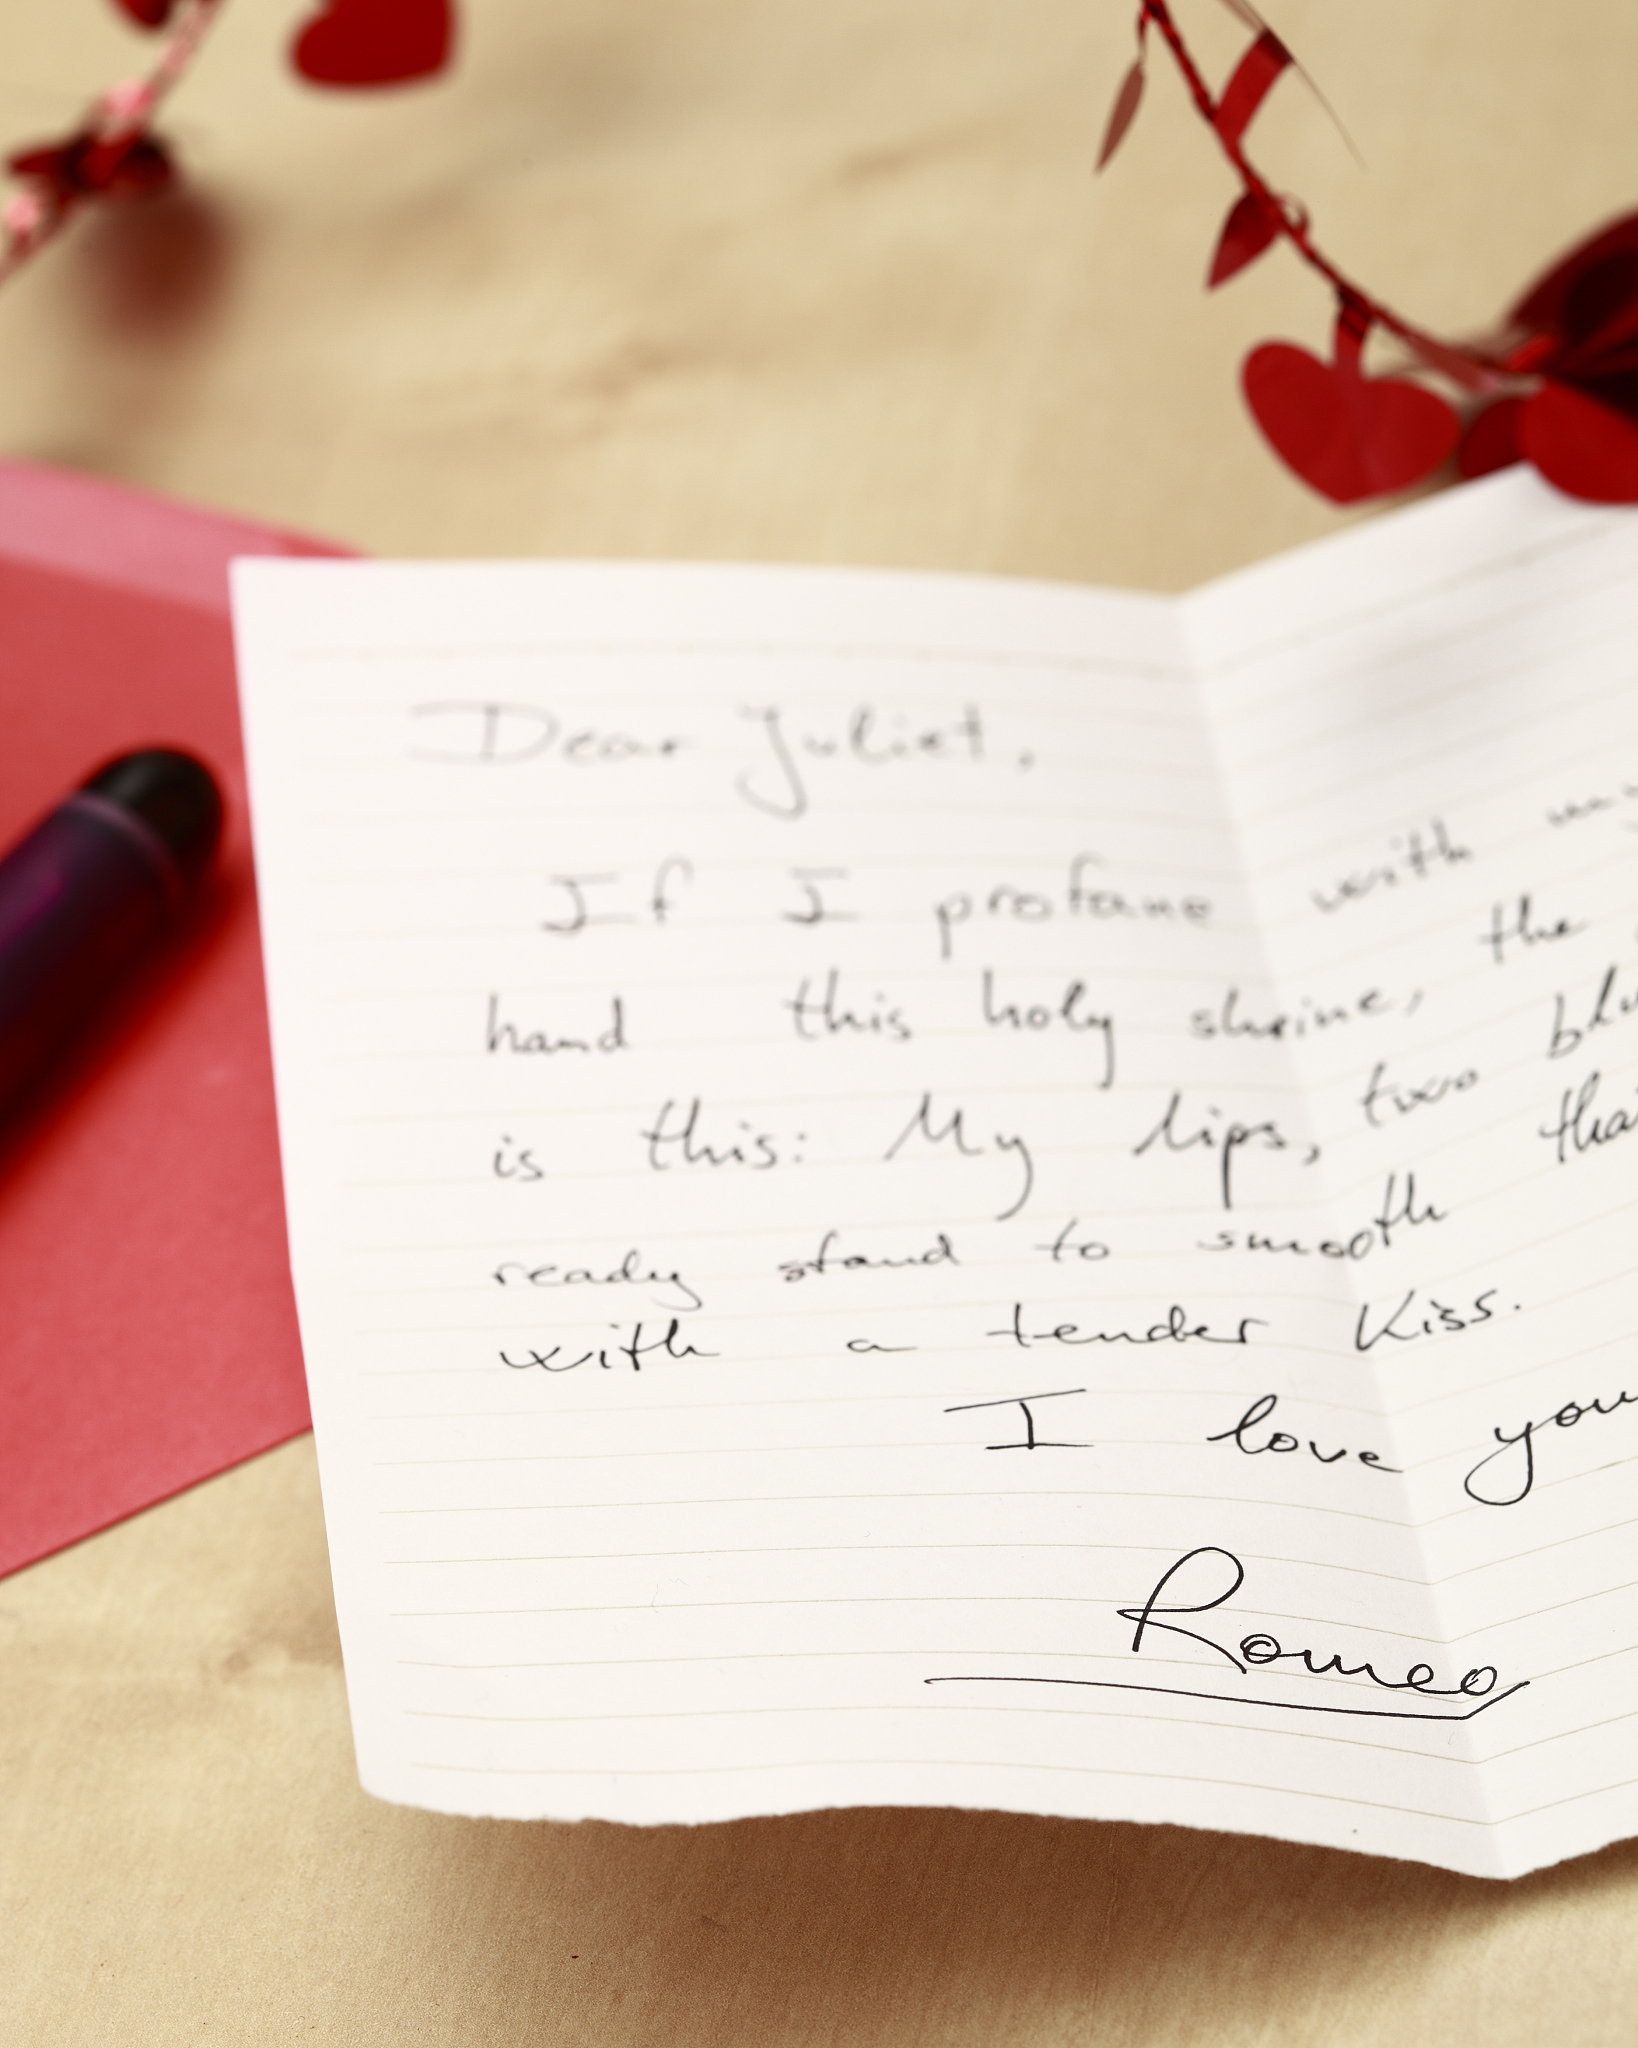 Dear Juliet,
If I profane with my
hand this holy shrine, the
is this: My lips, two blu
ready stand to smooth tha
with a tender Kiss.
I love you
Romeo